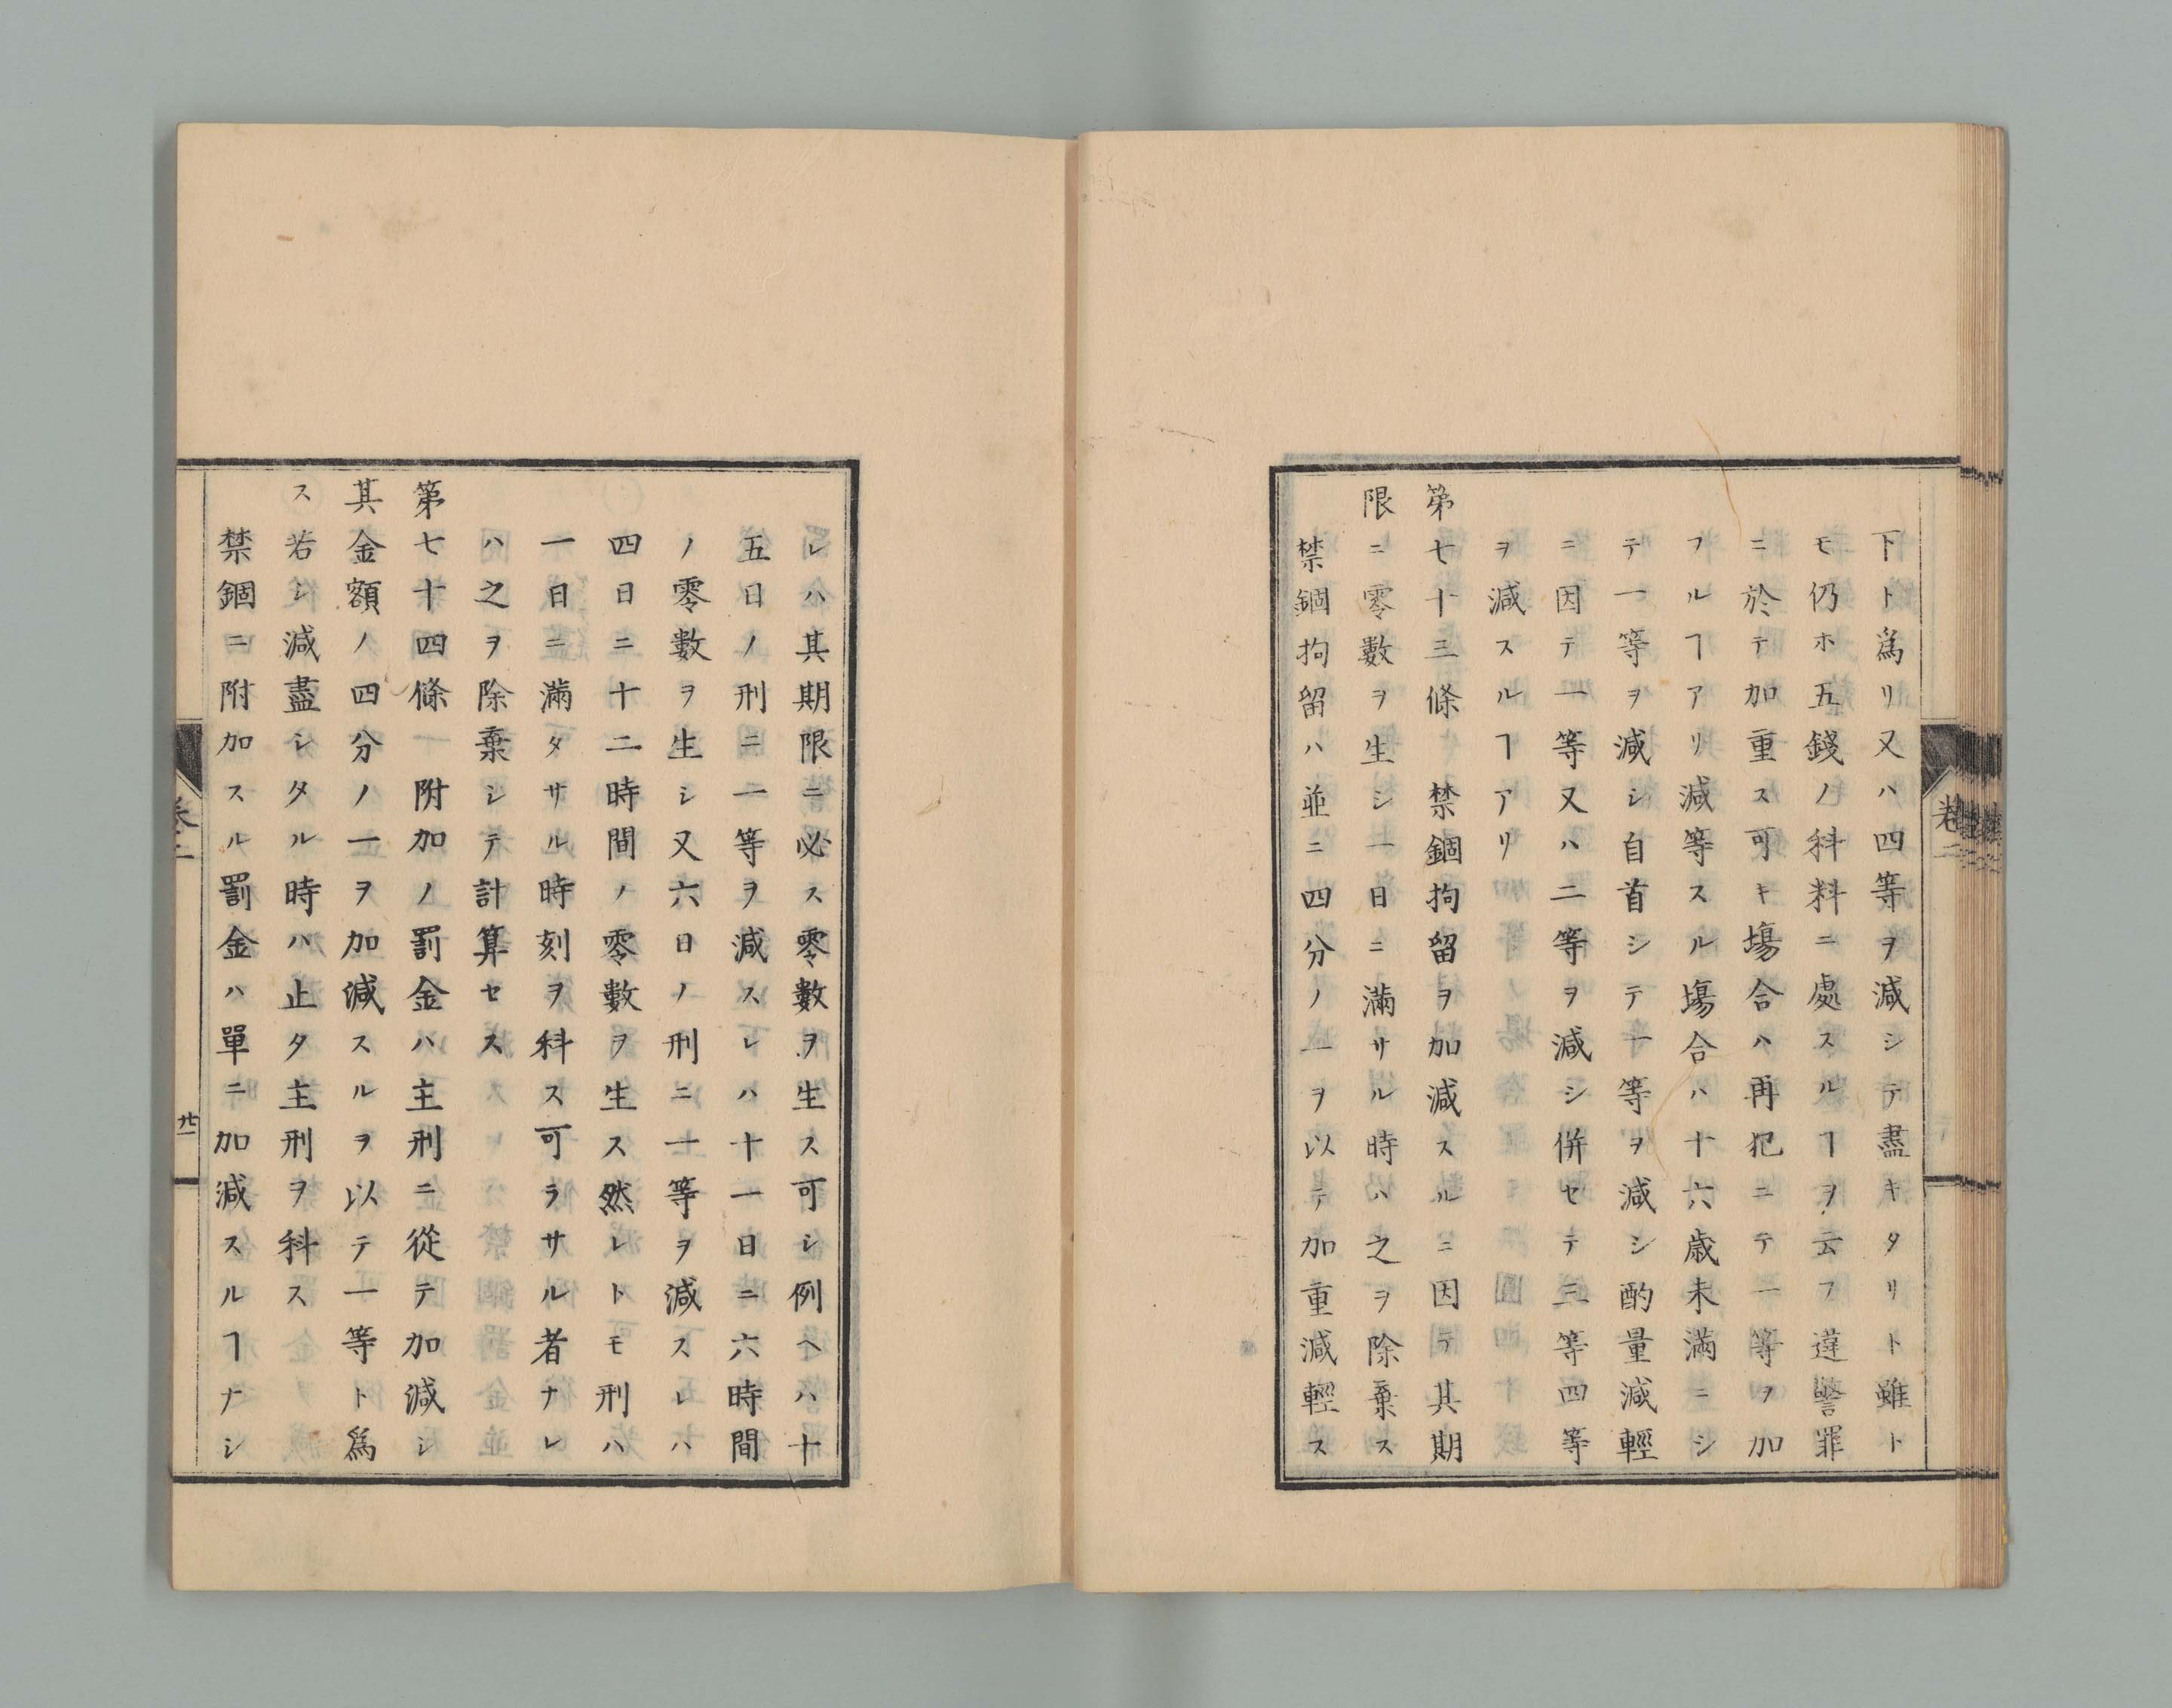 下ト爲リ又ハ四等ヲ減シテ盡キタリト雖ト
モ仍ホ五錢ノ科料ニ處スルヿヲ云フ違警罪
ニ於テ加重ス可キ塲合ハ再犯ニテ一等ヲ加
フルヿアリ減等スル塲合ハ十六歳未滿ニシ
テ一等ヲ減シ自首シテ一等ヲ減シ酌量減輕
ニ因テ一等又ハ二等ヲ減シ併セテ三等四等
ヲ減スルヿアリ
第七十三條 禁錮拘留ヲ加減スルニ因テ其期
限ニ零數ヲ生シ一日ニ滿サル時ハ之ヲ除棄ス
禁錮拘留ハ並ニ四分ノ一ヲ以テ加重減輕ス
レハ其期限ニ必ス零數ヲ生ス可シ例ヘハ十
五日ノ刑ニ一等ヲ減スレハ十一日ニ六時間
ノ零數ヲ生シ又六日ノ刑ニ一等ヲ減スレハ
四日ニ十二時間ノ零數ヲ生ス然レトモ刑ハ
一日ニ滿タサル時刻ヲ科ス可ラサル者ナレ
ハ之ヲ除棄シテ計算セス
第七十四條 附加ノ罰金ハ主刑ニ從テ加減シ
其金額ノ四分ノ一ヲ加減スルヲ以テ一等ト爲
ス若シ減盡シタル時ハ止タ主刑ヲ科ス
禁錮ニ附加スル罰金ハ單ニ加減スルヿナシ
卷二
卷二
廿一